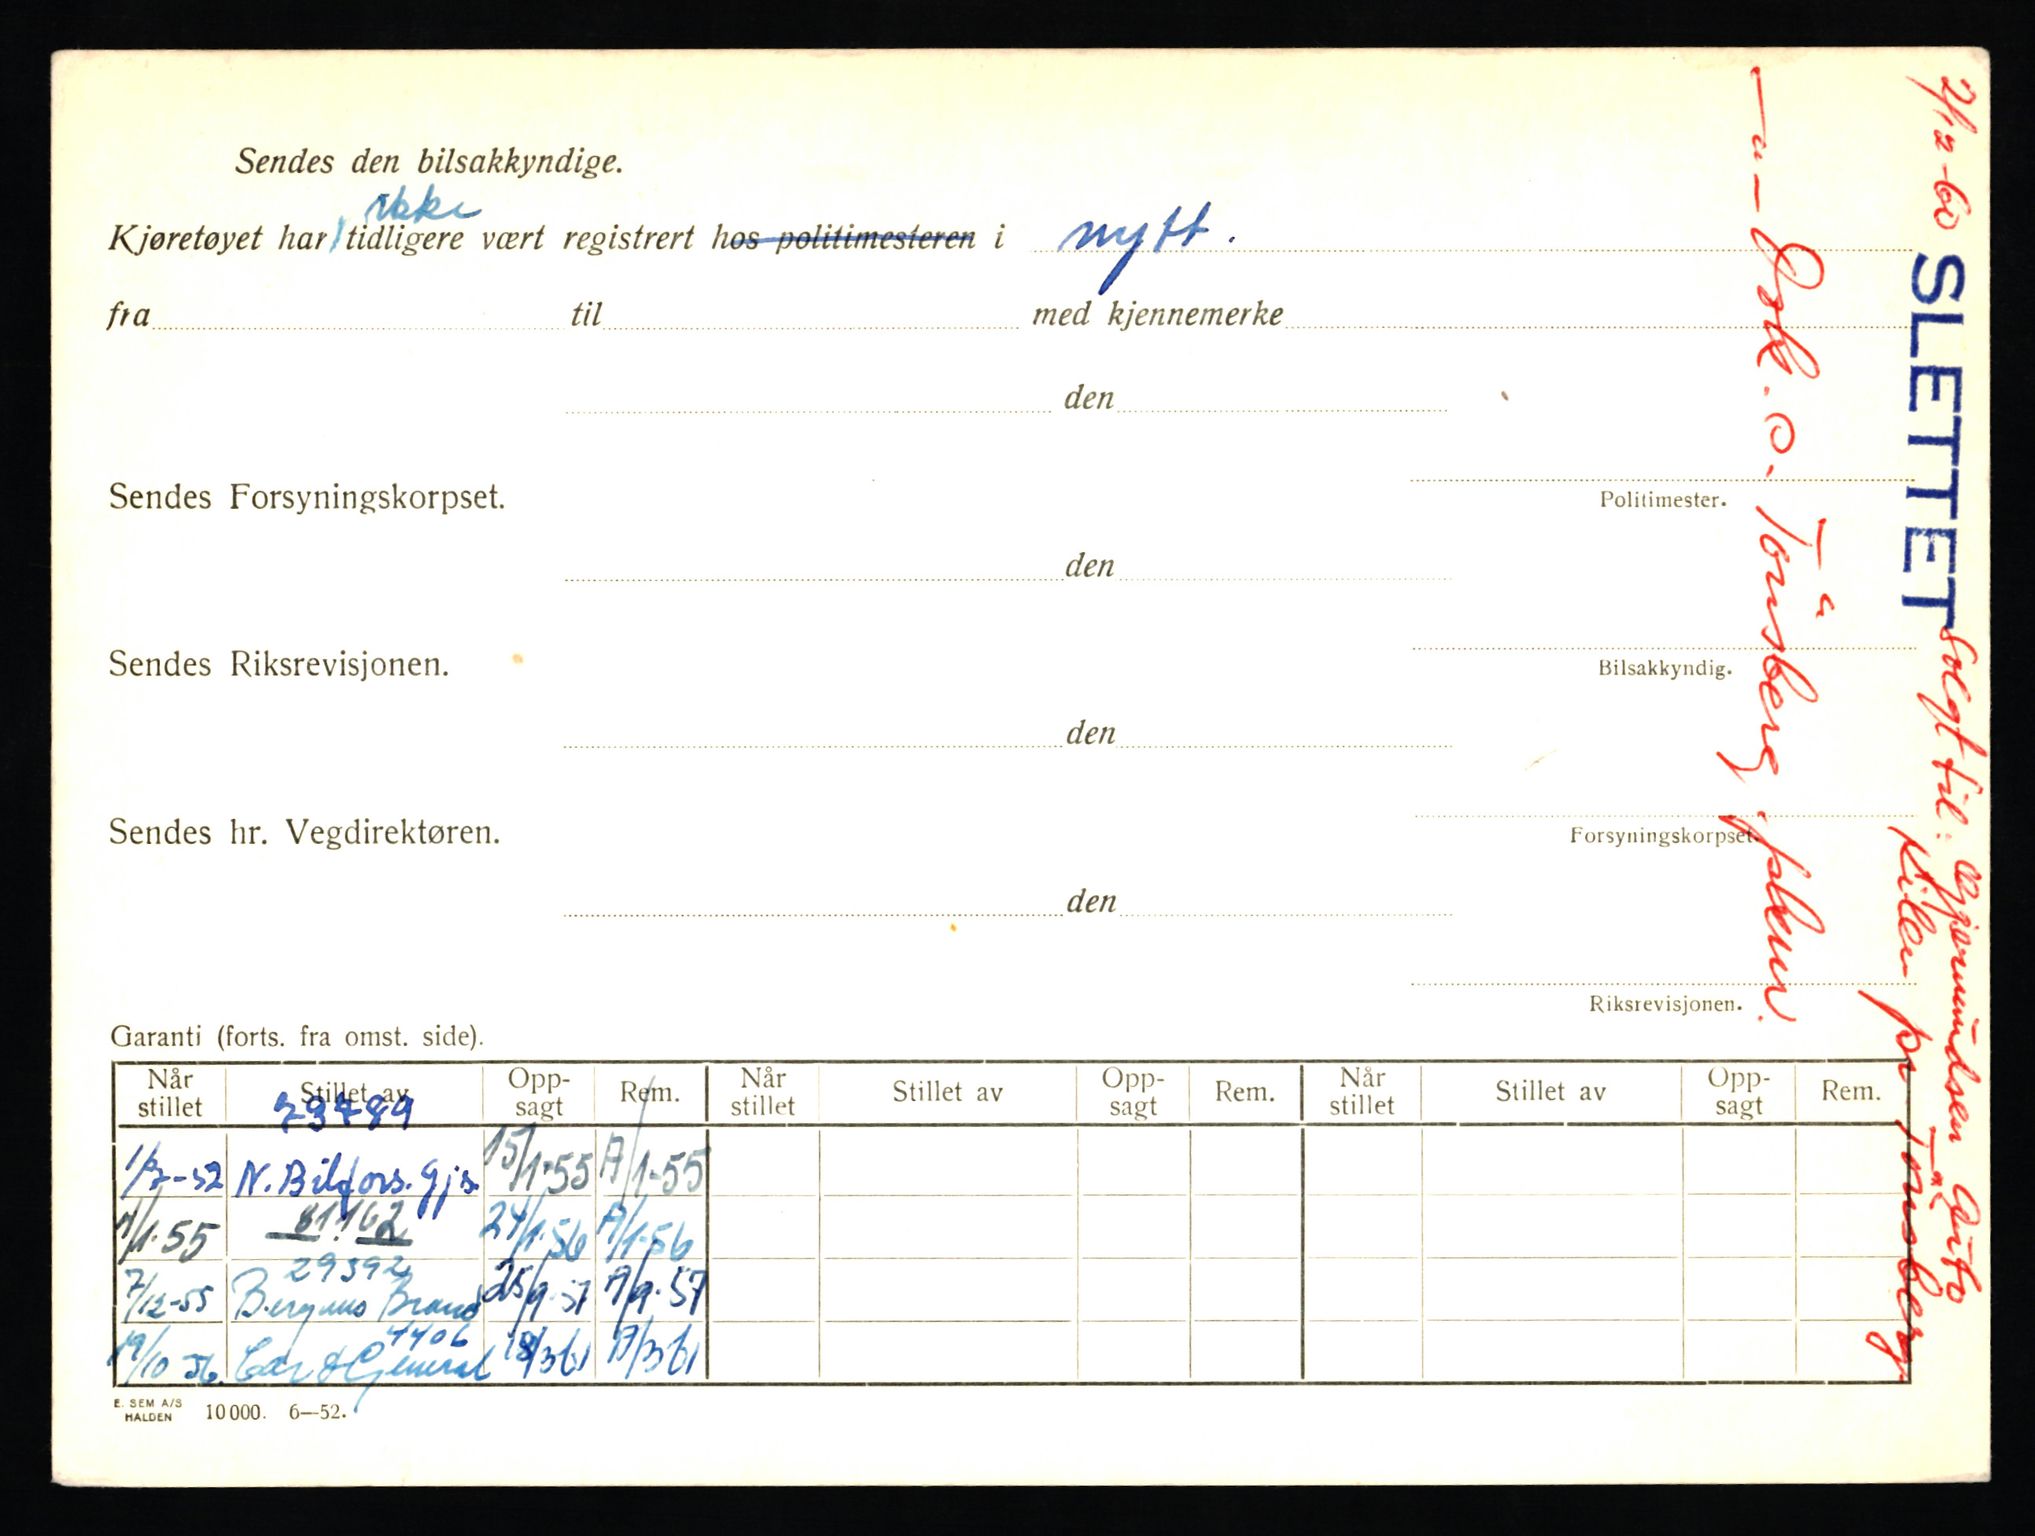 Sendes den bilsakkyndige.
ikke
Kjøretøyet har tidligere vært registrert hos politimesteren i nytt.
fra til med kjennemerke
den
Politimester.
Sendes Forsyningskorpset.
den
Bilsakkyndig.
Sendes Riksrevisjonen.
den
Forsyningskorpset.
Sendes hr. Vegdirektøren.
den
Riksrevisjonen.
Garanti (forts. fra omst. side).
Når stillet Stillet av Opp-sagt Rem. Når stillet Stillet av Opp-sagt Rem. Når stillet Stillet av Opp-sagt Rem.
29789
1/7-52 N. Bilfors. Gjs. 15/1-55 A/1-55
1/1-55 81162 24/1-56 A/1-56
29392
7/12-55 Bergens Brand 25/9-57 A/9-57
4406
19/10 56. Car & General 18/3 61 A/3 61
E. SEM A/S HALDEN 10000. 6—52.
2/12-60 SLETTET Solgt til: Gjermundsen Auto
Kilen pr Tønsberg
—"— O. Tønsberg